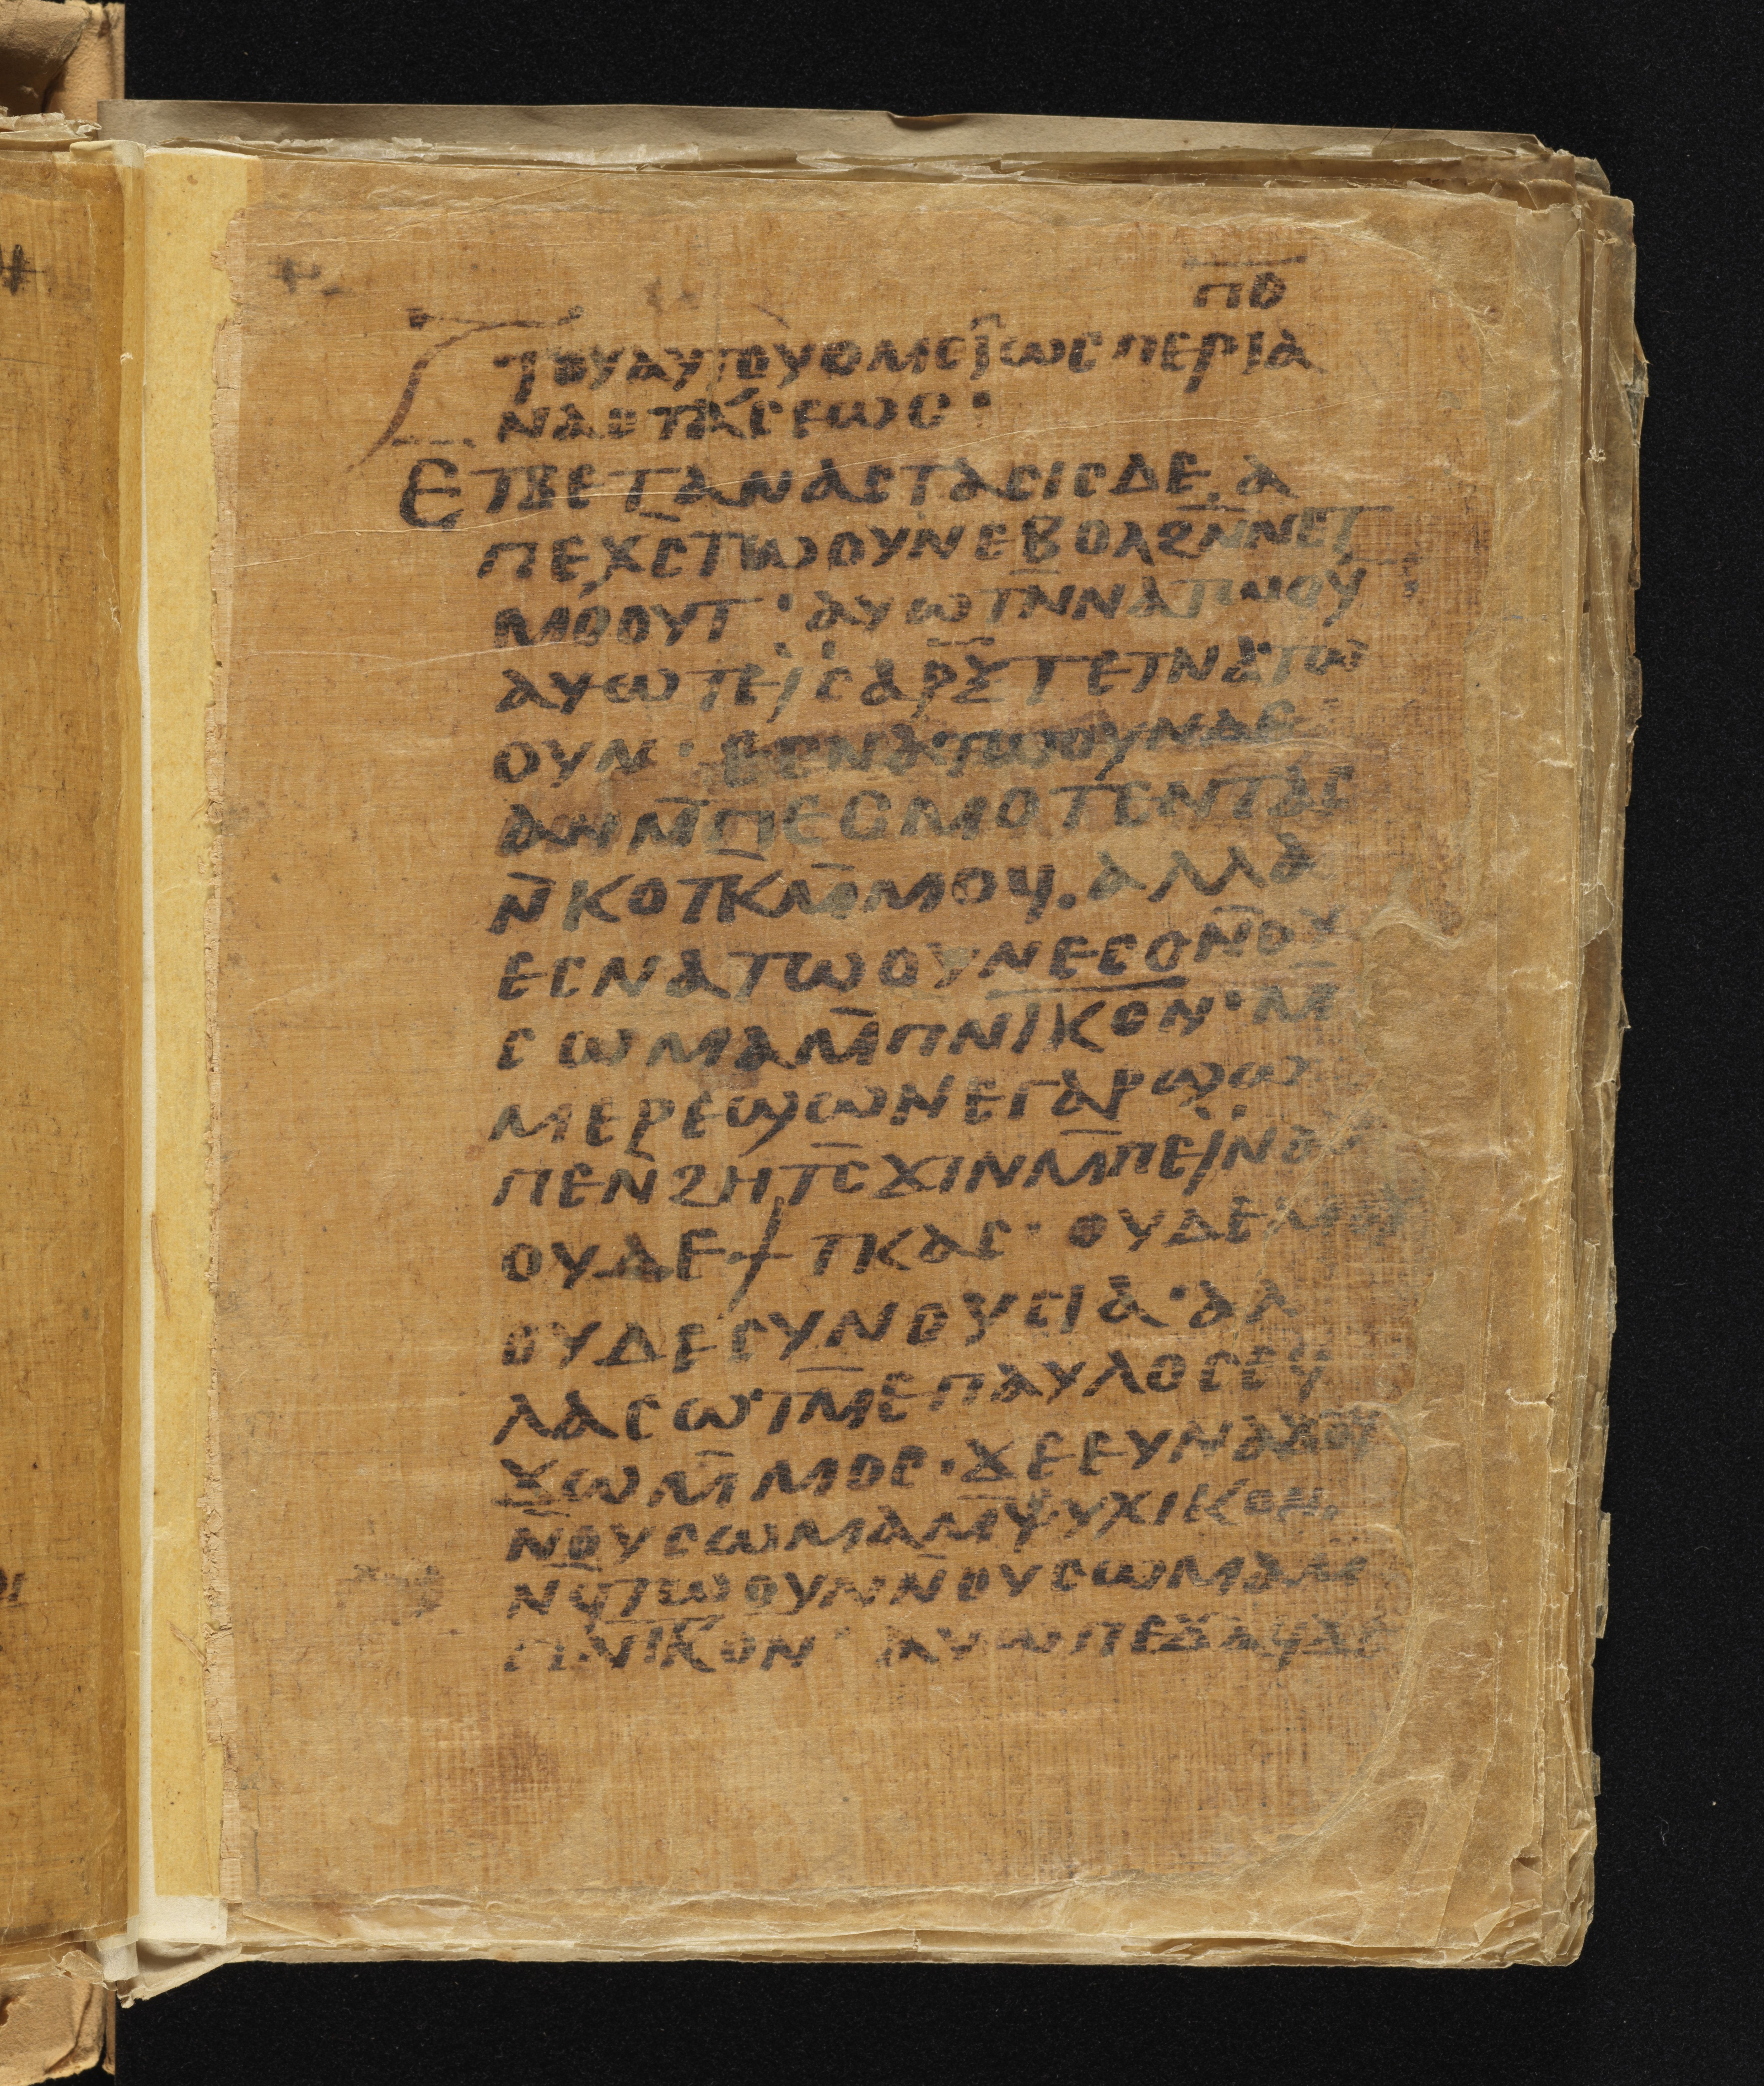 ⲡⲑ
ⲧⲟⲩⲁⲩⲧⲟⲩⲟⲙⲉⲓⲱⲥⲡⲉⲣⲓⲁ
ⲛⲁⲥⲧⲁⲥⲉⲱⲥ·
ⲉⲧⲃⲉⲧⲁⲛⲁⲥⲧⲁⲥⲓⲥⲇⲉ ⲁ
ⲡⲉⲭ̅ⲥ̅ⲧⲱⲟⲩⲛⲉⲃⲟⲗϩⲛ̅ⲛⲉⲧ
ⲙⲟⲟⲩⲧ· ⲁⲩⲱⲧⲛ̅ⲛⲁⲧⲱⲟⲩ
ⲁⲩⲱⲡⲉⲓ̈ⲥⲁⲣⲝ̅ⲧⲉⲧⲛⲁⲧⲱ
ⲟⲩⲛ· ⲉⲥⲛⲁⲧⲱⲟⲩⲛⲇⲉ
ⲁⲛⲙ̅ⲡⲉⲥⲙⲟⲧⲉⲛⲧⲁⲥ
ⲛ̅ⲕⲟⲧⲕ̅ⲙ̅ⲙⲟϥ. ⲁⲗⲗⲁ
ⲉⲥⲛⲁⲧⲱⲟⲩⲛⲉⲥⲟⲛ̅ⲟⲩ
ⲥⲱⲙⲁⲙ̅ⲡⲛⲓⲕⲟⲛ· ⲙ
ⲙⲉⲣⲉϣⲱⲛⲉⲅⲁⲣϣⲱ
ⲡⲉⲛ̅ϩⲏⲧⲥ̅ϫⲓⲛⲙ̅ⲡⲉⲓ̈ⲛⲁⲩ
ⲟⲩⲇⲉϯⲧⲕⲁⲥ· ⲟⲩⲇⲉ
ⲟⲩⲇⲉⲥⲩⲛⲟⲩⲥⲓⲁ· ⲁⲗ
ⲗⲁⲥⲱⲧⲙ̅ⲉⲡⲁⲩⲗⲟⲥⲉϥ
ϫⲱⲙ̅ⲙⲟⲥ· ϫⲉⲉⲩⲛⲁϫⲟϥ
ⲛ̅ⲟⲩⲥⲱⲙⲁⲙ̅ⲯⲩⲭⲓⲕⲟⲛ.
ⲛϥ̅ⲧⲱⲟⲩⲛⲛ̅ⲟⲩⲥⲱⲙⲁⲙ
ⲡ̅ⲛ̅ⲓ̅ⲕⲟⲛ· ⲁⲩⲱⲡⲉϫⲁϥϫⲉ